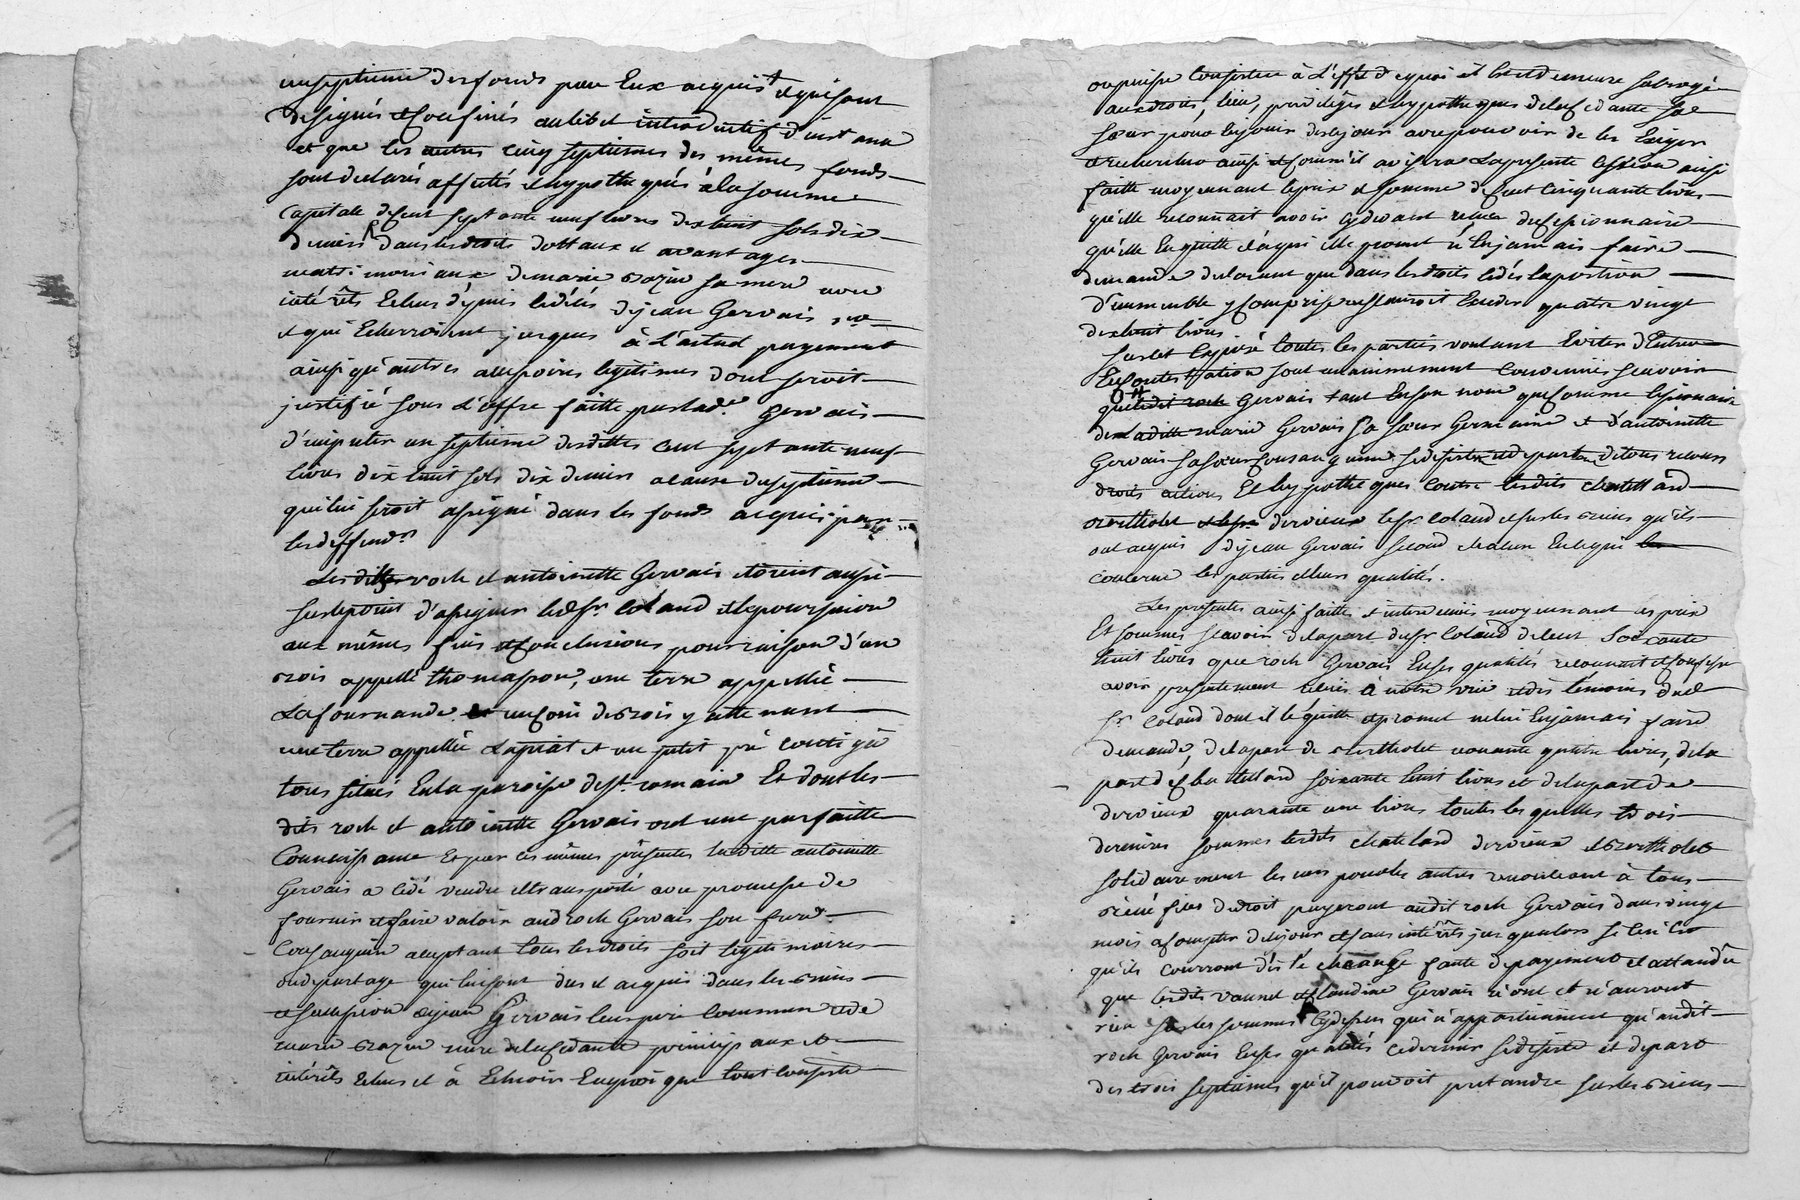 un septieme des fonds par Eux acquis et qui sont
designés et confinés au libel introductif d'instance
et que les autres cinq septiemes des mêmes fonds
sont declarés affectés et hypothequés a la somme
capitale de cent septante neuf livres dix huit sols dix
deniers dans les droits dottaux et avantages
matrimoniaux de marie sa mere avec
intérêts Echus depuis le décés de jean Gervais
et qui Echerroient jusques à L'actuel payement
ainsi qu'autres accessoires legitimes dont seroit
justifié sous L'offre faitte par lad. Gervais
d'imputer un septieme desdittes cent septante neuf
livres dix huit sols dix deniers a cause du septieme
qui lui seroit assigné dans les fonds acquis par
les deffend.rs
Lesdits roch et antoinette Gervais etoient aussi
sur le point d'assigner led. sr. Coland et le poursuivre
aux mêmes fins et conclusions pour raison d'un
bois appellé thomasson, une terre appellée
La fournande un coin de bois y attenant
une terre appellée et un petit pré contigu
tous situés En la paroisse de st. romain Et dont les
dits roch et antoinette Gervais ont une parfaitte
Connoissance Et par ces mêmes présentes laditte antoinette
Gervais a cédé vendu et transporté avec promesse de
fournir et faire valoir aud. roch Gervais son frere
Consanguin acceptant tous les droits soit légitimaires
ou de partage qui lui sont dus et acquis dans les biens
et succession de jean Gervais leur pere commun et de
marie mere de la cedante principaux et
intérêts Echus et à Echeoir En quoi que tout consiste
ou puisse Consister à L'effet de quoi il est et demeure subrogé
aux droits, lieu, privilèges et hypotheques de la cedante sa
sœur pour En jouir dès ce jour avec pouvoir de les Exiger
et rechercher ainsi et comm'il avisera La presente cession ainsi
faitte moyennant le prix et somme de cent cinquante livres
qu'elle reconnait avoir cy devant reçue du cessionnaire
qu'elle En quitte et a qui elle promet n'En jamais faire
demande declarant que dans les droits cédés la portion
d'immeuble y comprise ne sauroit Exceder quatre vingt
dix huit livres
Sur cet Exposé toutes les parties voulant Eviter d'Entrer
En contestation sont unanimement convenües scavoir
que ledit roch Gervais tant En son nom que comme cessionnaire
de laditte marie Gervais sa sœur Germaine et d'antoinette
Gervais sa sœur consanguine se desiste et depart de tous recours
droits actions Et hypotheques contre lesdits chatellard
bertholet dervieux le sr. coland et sur les biens qu'ils
ont acquis de jean Gervais second chacun En ce qui
concerne les parties et leurs qualités.
Les presentes ainsi faittes et intervenües moyennant les prix
Et sommes scavoir de la part du sr. Coland de cent soixante
huit livres que roch Gervais En ses qualités reconnait et confesse
avoir presentement reçües à notre vüe et des témoins dud.
sr. coland dont il le quitte et promet ne lui En jamais faire
demande, de la part de bertholet nonante quatre livres, de la
part de chatellard soixante huit livres et de la part de
dervieux quarante une livres toutes les quelles trois
dernieres sommes lesdits chatelard dervieux et bertholet
solidairement les uns pour les autres renonceant à tous
bénéfices de droit payeront audit roch Gervais dans vingt
mois a compter de ce jour et sans intérêts jusqu'alors
qu'ils courront dès l'échéance faute de payement et attandu
que lesdits et Claudine Gervais n'ont et n'auront
rien sur les sommes cy dessus qui n'appartiennent qu'audit
roch Gervais En ses qualités ce dernier se desiste et depart
des trois septiemes qu'il pouvoit pretandre sur les biens